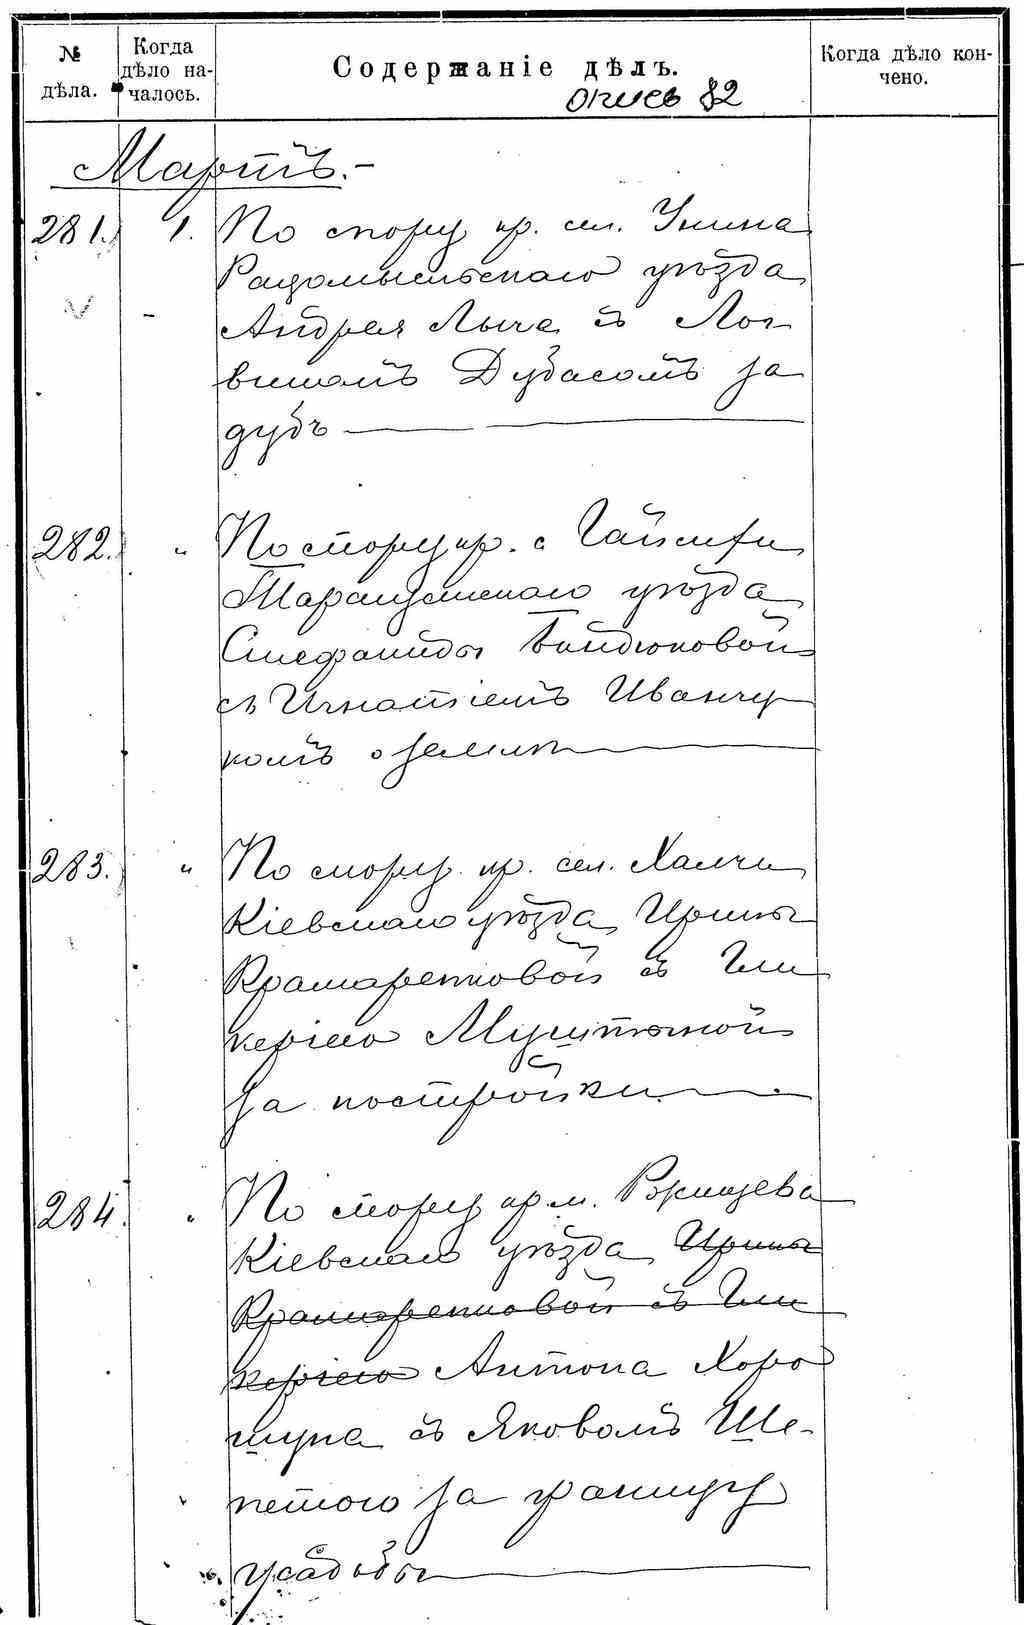 № дѣла.
Когда дѣло на-
чалось.
Содержаніе дѣлъ.
Когда дѣло кон-
чено.
опись 82
Мартъ.-
281. 1. По спору кр. сел. Унина
Радомысльскаго уѣзда
Андрея Лыча съ Лог
виномъ Дубасомъ за
дубъ
282. " По спору кр. с
Таращанскаго уѣзда
Стефаниды Бандюковой
съ Игнатіемъ Иванчу
комъ о землѣ
283. " По спору кр. сел. Халчи
Кіевскаго уѣзда Ирины
Крамаренковой съ Гли
керіею
за постройки
284. " По спору кр. м. Ржищева
Кіевскаго уѣзда Ирины
Крамаренковой съ Гли
керіею Антона Хоро
шуна съ Яковомъ Ше-
петою за границу
усадьбы